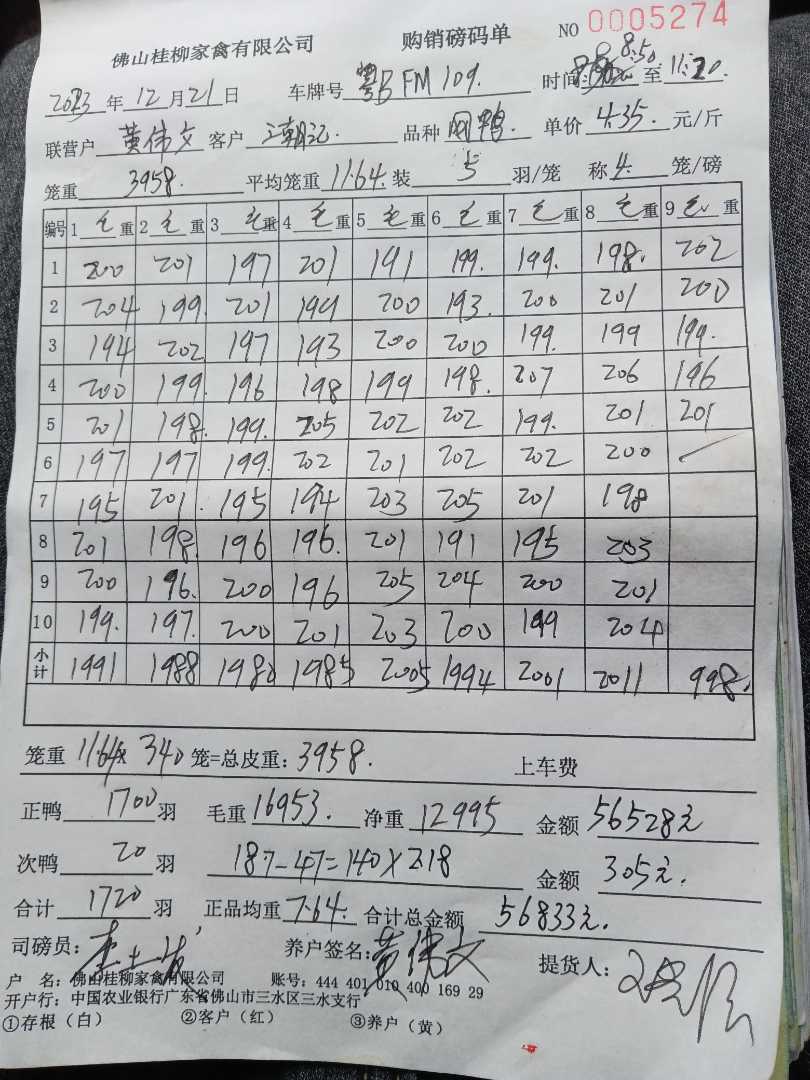 佛山桂柳家禽有限公司 购销磅码单 NO 0005274
2023年12月21日 车牌号 粤B FM109. 时间: 8:50 至 11:20
联营户 黄伟文 客户 品种 网鸭. 单价 4.35 元/斤
笼重 3958. 平均笼重 11.64. 装 5 羽/笼 称 4 笼/磅
编号 1 毛 重 2 毛 重 3 毛 重 4 毛 重 5 毛 重 6 毛 重 7 毛 重 8 毛 重 9 毛 重
1 200 201 197 201 191 199. 199. 198. 202
2 204 199. 201 199 200 193. 200 201 200
3 194 202 197 193 200 200 199. 199 199.
4 200 199. 196 198 199 198. 207 206 196
5 201 198. 199. 205 202 202 199. 201 201
6 197 197 199. 202 201 202 202 200
7 195 201. 195 194 203 205 201 198
8 201 198. 196 196. 201 191 195 203
9 200 196. 200 196 205 204 200 201
10 199. 197. 200 201 203 200 199 204
小计 1991 1988 1980 1985 2005 1994 2001 2011 998.
笼重 11.64x 340 笼=总皮重: 3958. 上车费
正鸭 1700 羽 毛重 16953. 净重 12995 金额 56528元
次鸭 20 羽 187-47=140×2.18 金额 305元.
合计 1720 羽 正品均重 7.64. 合计总金额 56833元.
司磅员: 养户签名: 黄伟文 提货人:
户 名: 佛山桂柳家禽有限公司 账号: 444 401 010 400 169 29
开户行: 中国农业银行广东省佛山市三水区三水支行
①存根（白） ②客户（红） ③养户（黄）